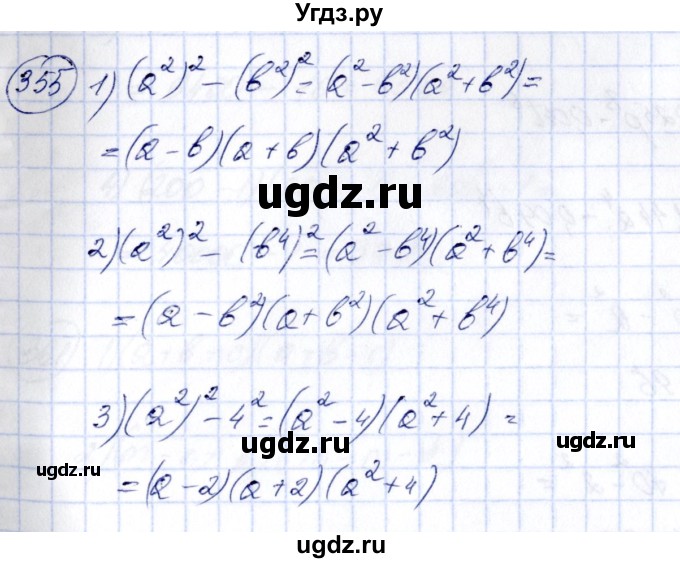 Угдз.ру
355 1) (a²)² - (b²)² = (a² - b²)(a² + b²) =
= (a - b)(a + b)(a² + b²)
ugdz.ru
2) (a²)² - (b⁴)² = (a² - b⁴)(a² + b⁴) =
= (a - b²)(a + b²)(a² + b⁴)
3) (a²)² - 4² = (a² - 4)(a² + 4) =
ugdz.ru
ugdz.ru
= (a - 2)(a + 2)(a² + 4)
ugdz.ru